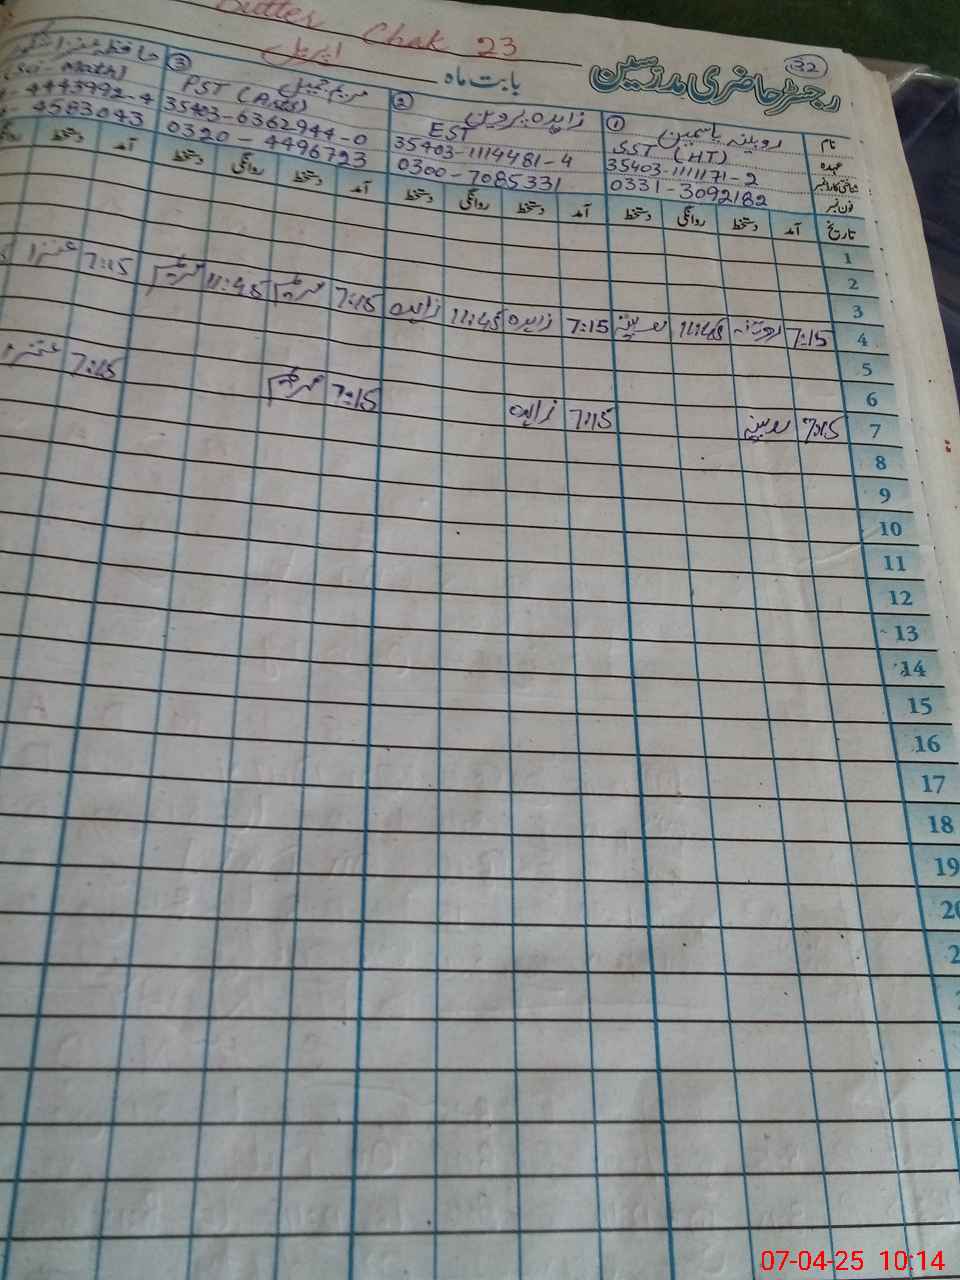 Butter Chak 23
32
رجسٹر حاضری مدرسین
بابت ماہ اپریل
نام ① روبینہ یاسمین ② زاہدہ پروین ③ مریم جمیل
عہدہ SST (HT) EST PST (Arts) Sci-Math)
شناختی کارڈ نمبر 35403-1111171-2 35403-1114481-4 35403-6362944-0 4443992-4
فون نمبر 0331-3092182 0300-7085331 0320-4496723 4583043
تاریخ آمد دستخط روانگی دستخط آمد دستخط روانگی دستخط آمد دستخط روانگی دستخط آمد دستخط
1
2
3
4 7:15 روبینہ 11:45 روبینہ 7:15 زاہدہ 11:45 زاہدہ 7:15 مریم 11:45 مریم 7:15
5
6
7 7:15 روبینہ 7:15 زاہدہ 7:15 مریم 7:15
8
9
10
11
12
13
14
15
16
17
18
19
07-04-25 10:14